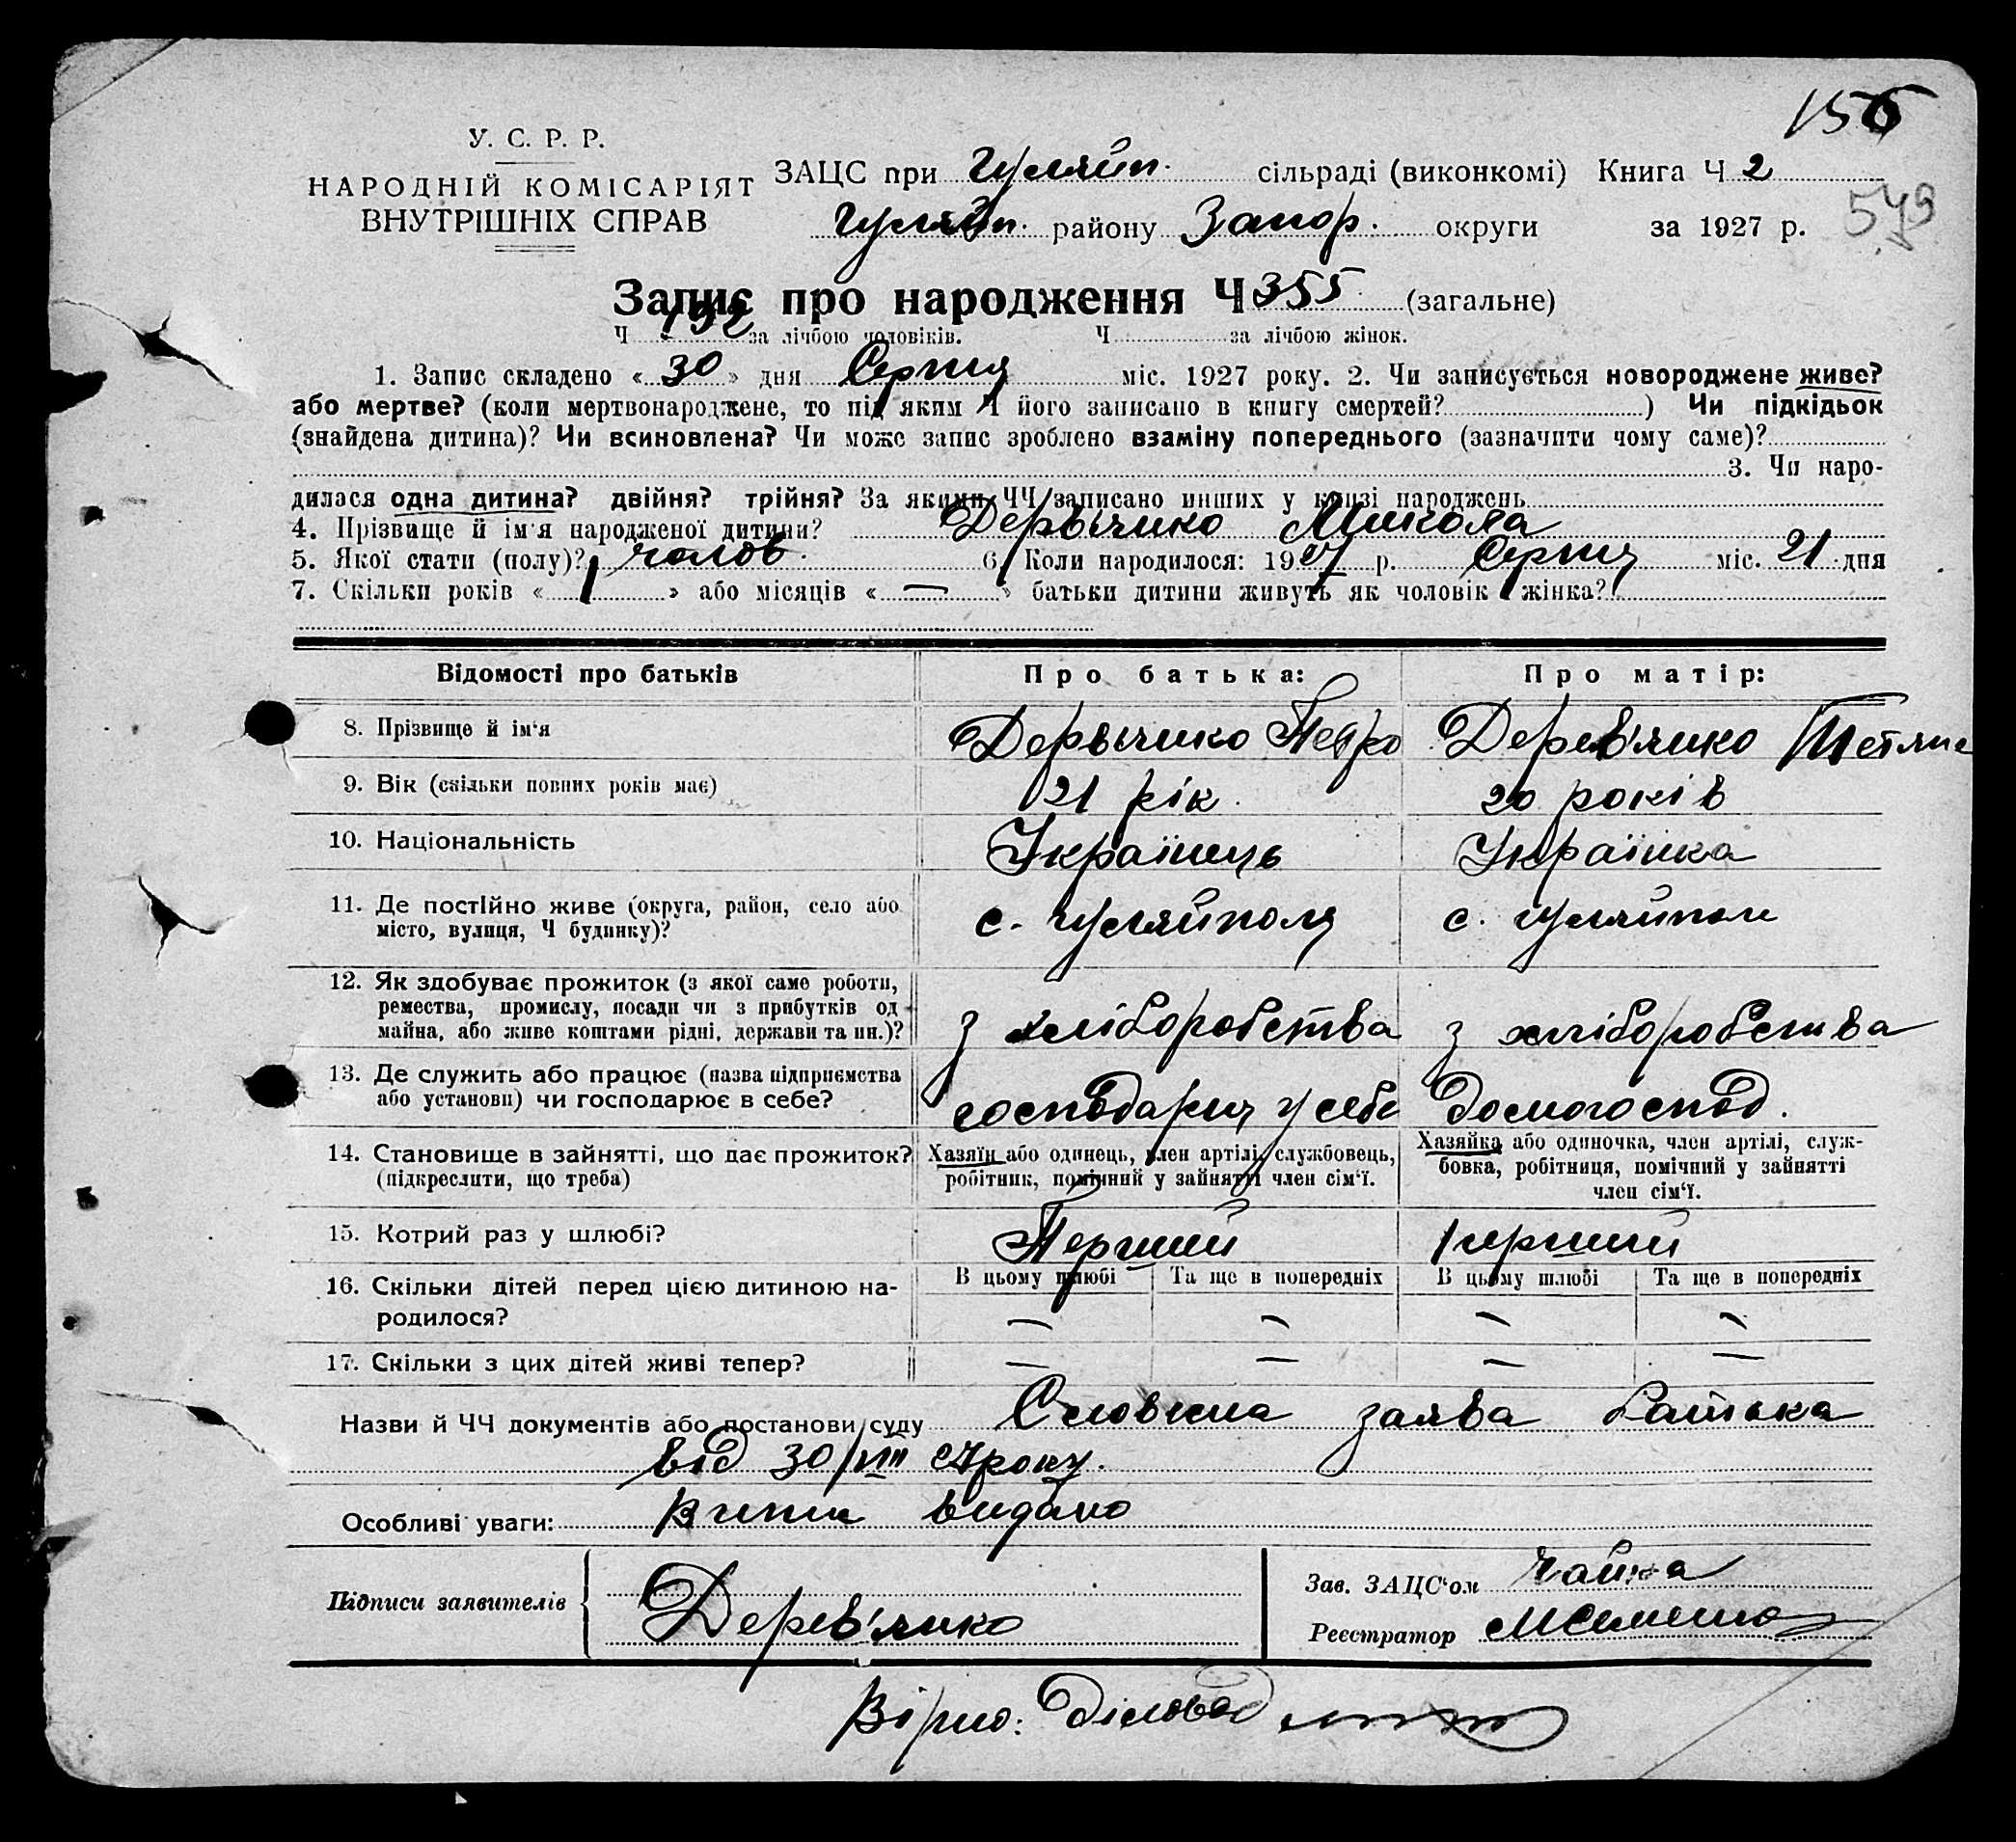 155
У. С. Р. Р.
НАРОДНІЙ КОМІСАРІЯТ
ВНУТРІШНІХ СПРАВ
ЗАЦС при Гуляйп. сільраді (виконкомі) Книга Ч 2
Гуляйп. району Запор. округи за 1927 р.
579
Запис про народження Ч 355 (загальне)
Ч 192 за лічбою чоловіків. Ч за лічбою жінок.
1. Запис складено «30» дня Серпня міс. 1927 року. 2. Чи записується новороджене живе?
або мертве? (коли мертвонароджене, то під яким Ч його записано в книгу смертей? ) Чи підкідьок
(знайдена дитина)? Чи всиновлена? Чи може запис зроблено взаміну попереднього (зазначити чому саме)?
3. Чи наро-
дилася одна дитина? двійня? трійня? За якими ЧЧ записано инших у книзі народжень
4. Прізвище й ім'я народженої дитини? Дервянко Микола
5. Якої стати (полу)? чолов. 6. Коли народилося: 1927 р. Серпня міс. 21 дня
7. Скільки років « 1 » або місяців « — » батьки дитини живуть як чоловік і жінка?
Відомості про батьків Про батька: Про матір:
8. Прізвище й ім'я Дервянко Петро Дерев'янко Тетяна
9. Вік (скільки повних років має) 21 рік. 20 років
10. Національність Українець Українка
11. Де постійно живе (округа, район, село або
місто, вулиця, Ч будинку)? с. Гуляйполя с. Гуляйполе
12. Як здобуває прожиток (з якої саме роботи,
ремества, промислу, посади чи з прибутків од
майна, або живе коштами рідні, держави та ин.)? з хліборобства з хліборобства
13. Де служить або працює (назва підприємства
або установи) чи господарює в себе? господарює у себе домогоспод.
14. Становище в зайнятті, що дає прожиток?
(підкреслити, що треба)
Хазяїн або одинець, член артілі, службовець,
робітник, помічний у зайнятті член сім'ї.
Хазяйка або одиночка, член артілі, служ-
бовка, робітниця, помічний у зайнятті
член сім'ї.
15. Котрий раз у шлюбі? Перший перший
16. Скільки дітей перед цією дитиною на-
родилося?
В цьому шлюбі Та ще в попередніх В цьому шлюбі Та ще в попередніх
— — — —
17. Скільки з цих дітей живі тепер? — — — —
Назви й ЧЧ документів або постанови суду Словесна заява батька
від 30/VIII 27 року.
Особливі уваги: Витяг видано
Підписи заявителів
Дерев'янко
Зав. ЗАЦС'ом Чайка
Реєстратор
Вірно: Діловод